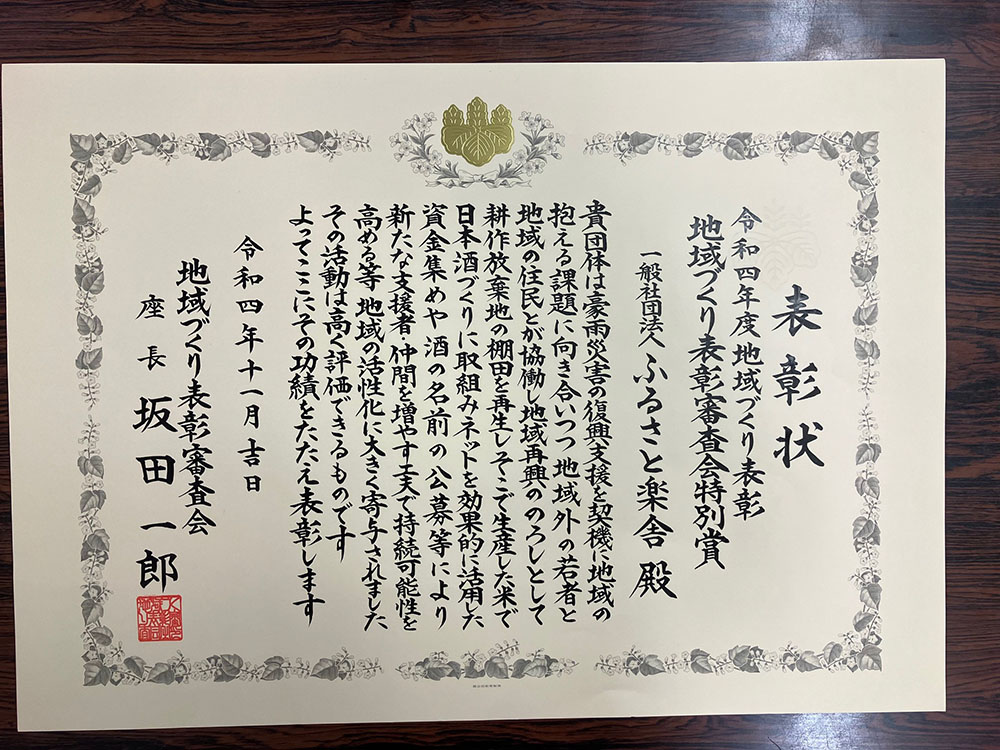 表彰状
令和四年度地域づくり表彰
地域づくり表彰審査会特別賞
一般社団法人 ふるさと楽舎 殿
貴団体は豪雨災害の復興支援を契機に地域の
抱える課題に向き合いつつ地域外の若者と
地域の住民とが協働し地域再興ののろしとして
耕作放棄地の棚田を再生しそこで生産した米で
日本酒づくりに取組みネットを効果的に活用した
資金集めや酒の名前の公募等により
新たな支援者・仲間を増やす工夫で持続可能性を
高める等 地域の活性化に大きく寄与されました
その活動は高く評価できるものです
よってここにその功績をたたえ表彰します
令和四年十一月吉日
地域づくり表彰審査会
座長 坂田一郎